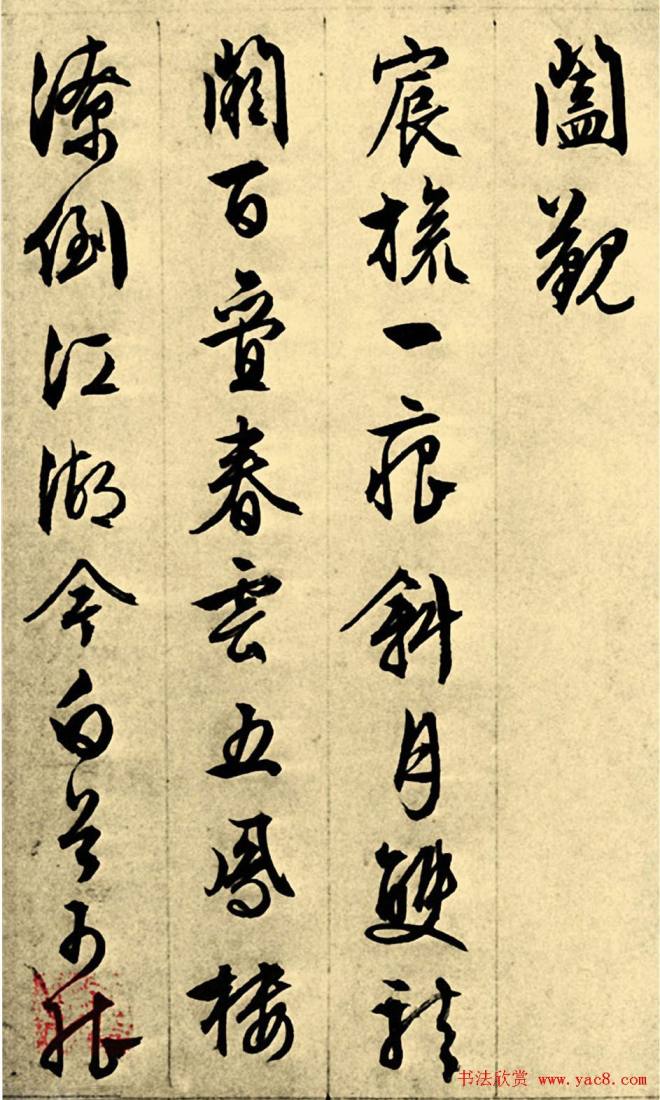 闔覲
宸旒一痕斜月雙龍
闕百疊春雲五鳳樓
潦倒江湖今白首可能
书法欣赏 www.yac8.com